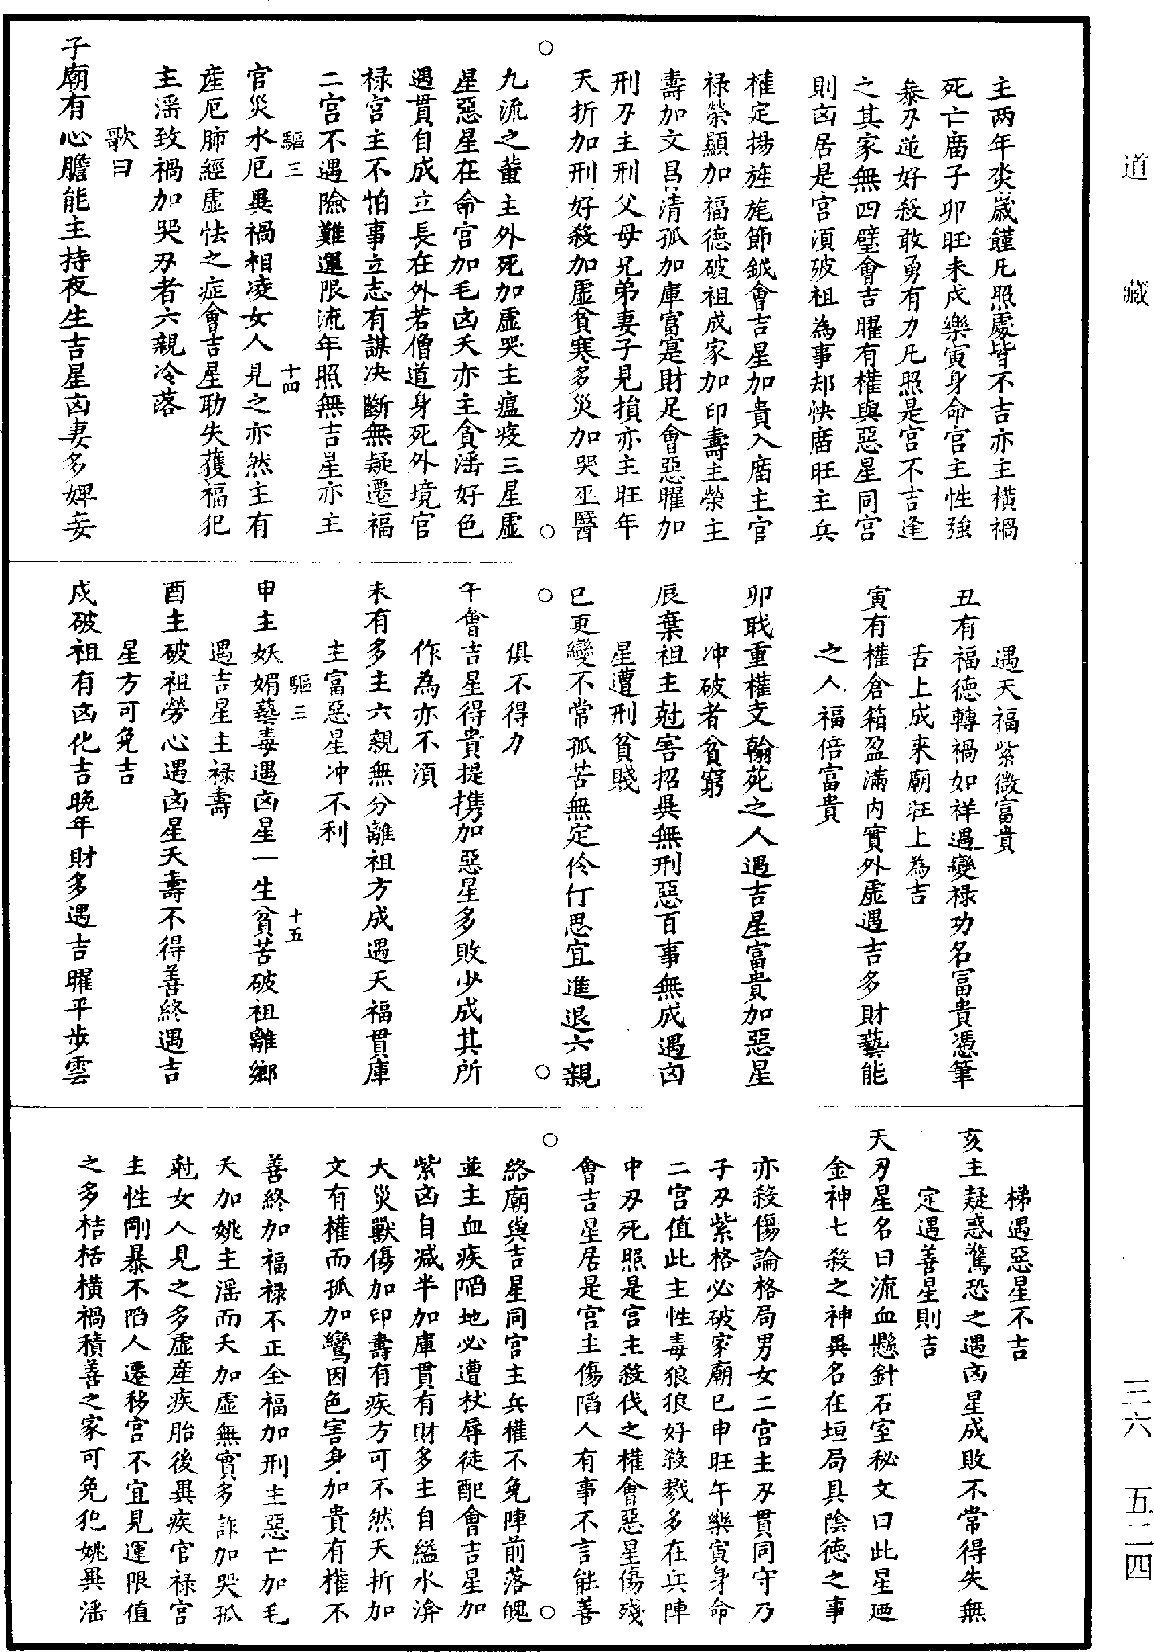 道藏
三六 五二四
主两年灾歲饉凡照處皆不吉亦主橫禍
死亡廟子卯旺未戌樂寅身命宮主性強
暴刃逆好殺敢勇有力凡照是宮不吉逢
之其家無四壁會吉曜有權與惡星同宮
則凶居是宮須破祖為事却快廟旺主兵
權定揚旌旄節鉞會吉星加貴入廟主官
禄榮顯加福德破祖成家加印壽主榮主
壽加文昌清孤加庫富寔財足會惡曜加
刑刃主刑父母兄弟妻子見損亦主旺年
夭折加刑好殺加虛貧寒多災加哭巫醫
九流之輩主外死加虛哭主瘟疫三星虛
星惡星在命宮加毛凶夭亦主貪滛好色
遇貫自成立長在外若僧道身死外境官
禄宮主不怕事立志有謀决斷無疑遷福
二宮不遇險難運限流年照無吉星亦主
驅三 十四
官災水厄異禍相凌女人見之亦然主有
産厄肺經虛怯之症會吉星助失獲福犯
主滛致禍加哭刃者六親冷落
歌曰
子廟有心膽能主持夜生吉星凶妻多婢妾
遇天福紫微富貴
丑有福德轉禍如祥遇變禄功名富貴憑筆
舌上成來廟旺上為吉
寅有權倉箱盈滿内實外虛遇吉多財藝能
之人福倍富貴
卯戢重權文翰苑之人遇吉星富貴加惡星
冲破者貧窮
辰棄祖主尅害招異無刑惡百事無成遇凶
星遭刑貧賤
巳更變不常孤苦無定伶仃思宜進退六親
俱不得力
午會吉星得貴提携加惡星多敗少成其所
作為亦不須
未有多主六親無分離祖方成遇天福貫庫
主富惡星冲不利
驅三 十五
申主妖媚藝毒遇凶星一生貧苦破祖離鄉
遇吉星主禄壽
酉主破祖勞心遇凶星夭壽不得善終遇吉
星方可免吉
戌破祖有凶化吉晚年財多遇吉曜平步雲
梯遇惡星不吉
亥主疑惑驚恐之遇凶星成敗不常得失無
定遇善星則吉
天刃星名曰流血懸針石室秘文曰此星廼
金神七殺之神異名在垣局具陰德之事
亦殺傷論格局男女二宮主刃貫同守乃
子刃紫格必破家廟巳申旺午樂寅身命
二宮值此主性毒狼狠好殺戮多在兵陣
中刃死照是宮主殺伐之權會惡星傷殘
會吉星居是宮主傷䧟人有事不言能善
絡廟與吉星同宮主兵權不免陣前落魄
並主血疾陷地必遭杖辱徒配會吉星加
紫凶自減半加庫貫有財多主自縊水溺
大災獸傷加印壽有疾方可不然夭折加
文有權而孤加鸞因色害身加貴有權不
善終加福禄不正全福加刑主惡亡加毛
夭加姚主滛而夭加虛無實多詐加哭孤
尅女人見之多虛産疾胎後異疾官禄宮
主性剛暴不陷人遷移宮不宜見運限值
之多桔梏橫禍積善之家可免犯姚異滛